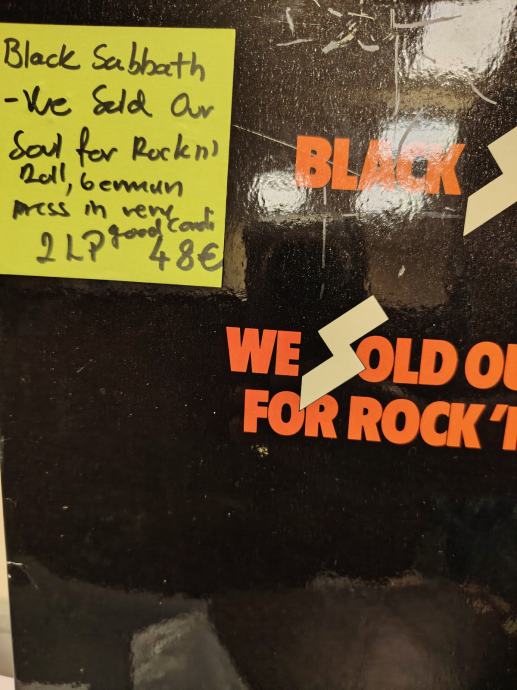 Black Sabbath
- We Sold Our
Soul for Rock n'
Roll, German
press in very
good Condi
2 LP 48€
BLACK S
WE SOLD OU
FOR ROCK 'N